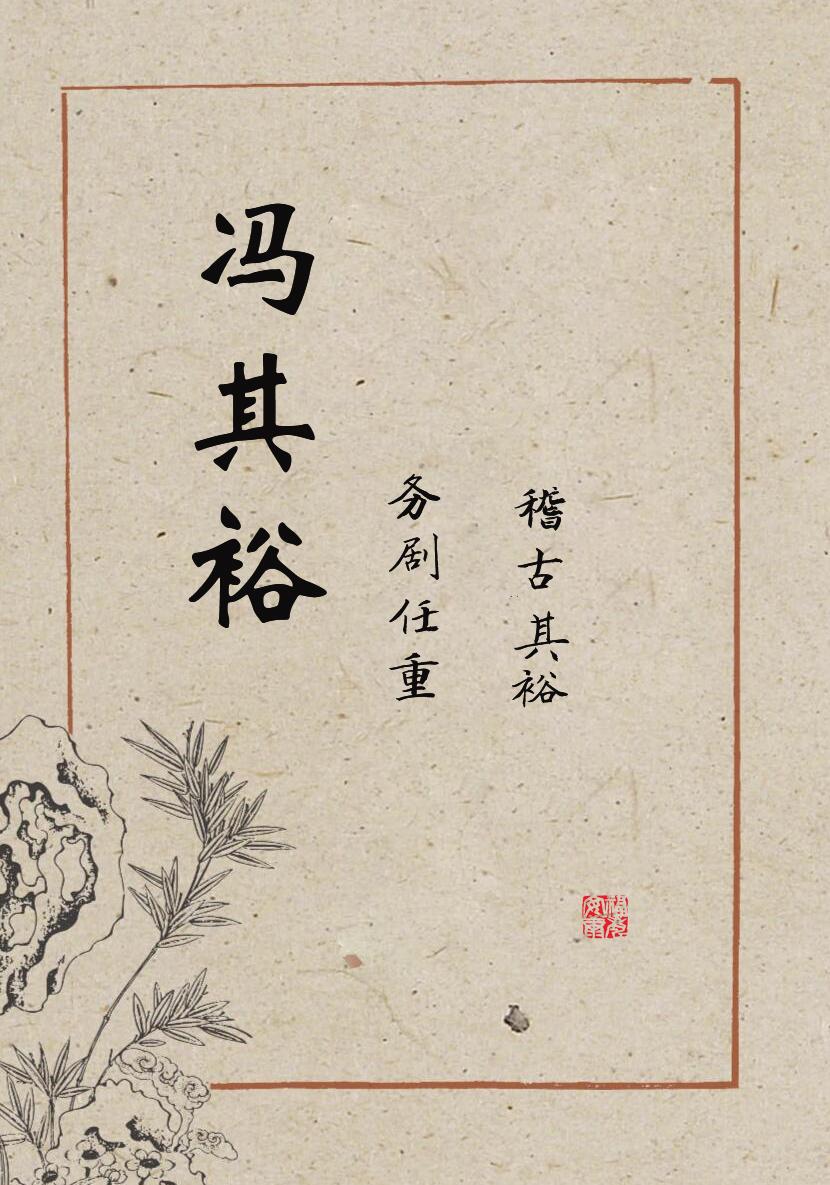 冯其裕
稽古其裕
务剧任重